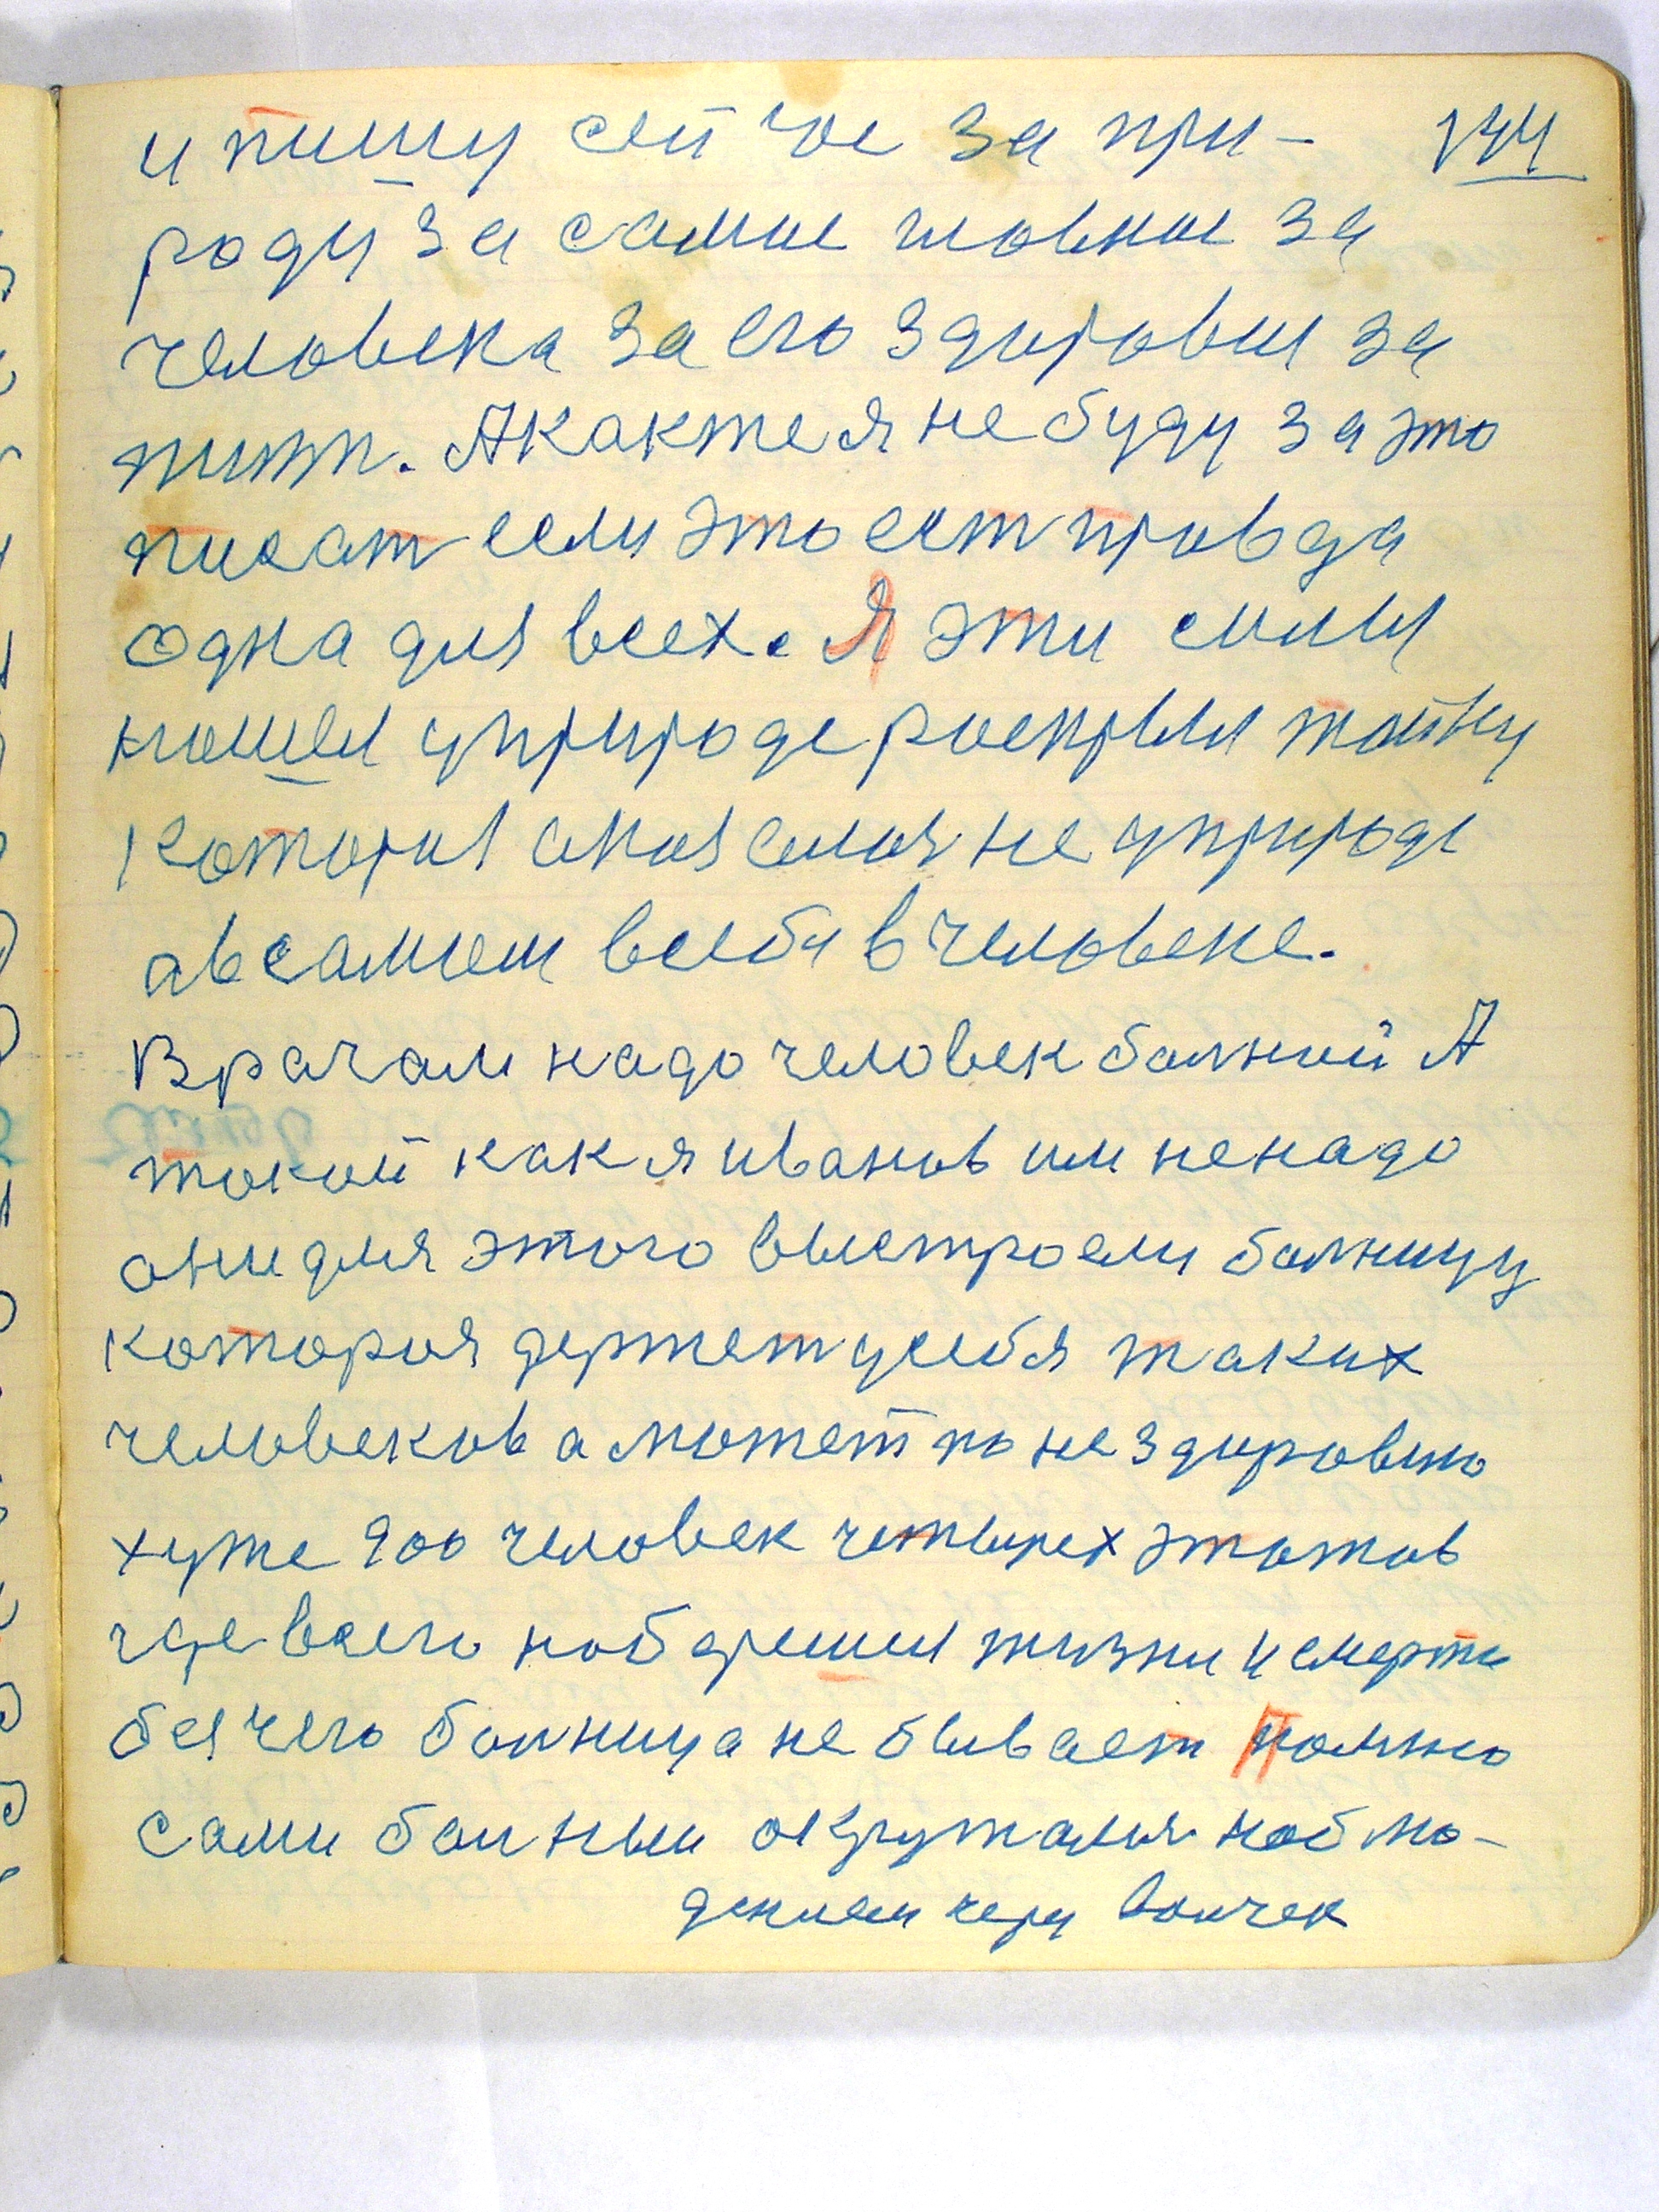 и пишу сей час за при- 144
роду за самие главное за
человека за его здоровие за
жизн. А как же я не буду за это
писат если это ест правда
одна для всех. Я эти силы
нашел у природе раскрыл тайну
которая она была не у природе
а в самем в себе в человеке.
Врачам надо человек болной А
такой как я иванов им не надо
они для этого выстроели болницу
которая держет у себя таких
человеков а может по не здоровию
хуже 900 человек четырех этажов
где всего наб дешил жизни и смерти
без чего болница не бывает полжно
сами болныи окружалися наблю-
дением через волчек